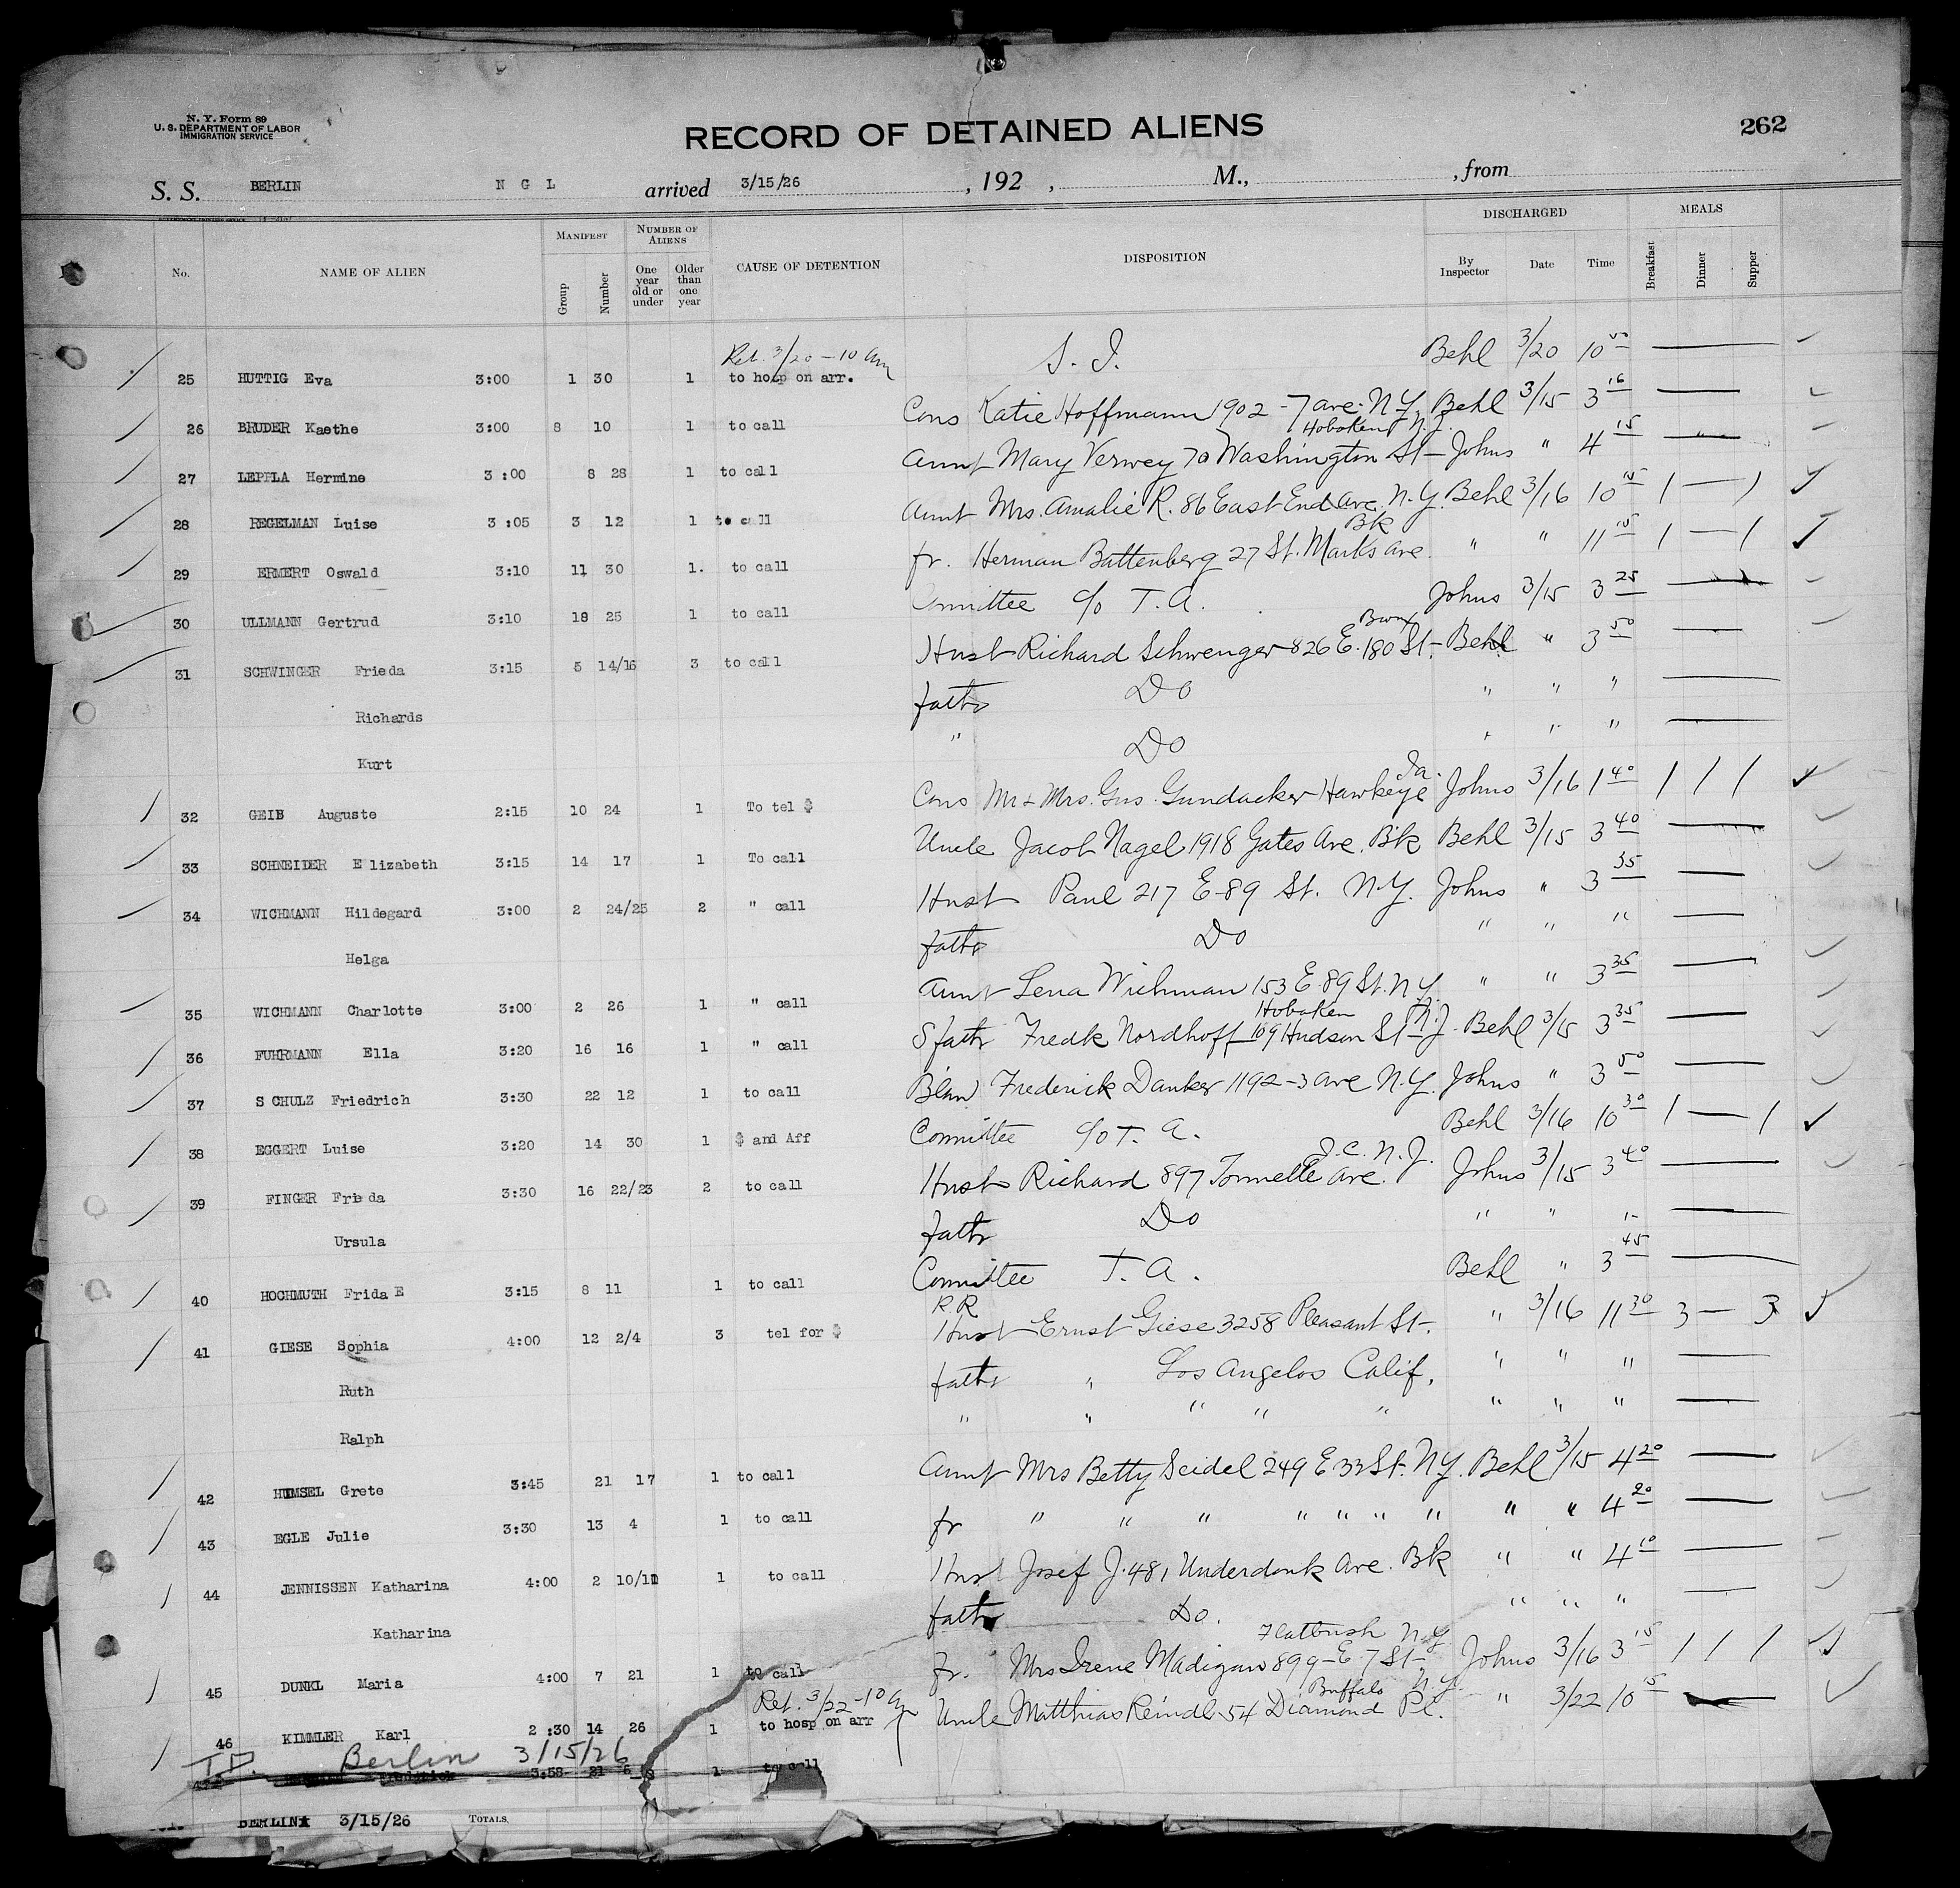 N. Y. Form 89
U. S. DEPARTMENT OF LABOR
IMMIGRATION SERVICE
RECORD OF DETAINED ALIENS
262
S. S. BERLIN N G L arrived 3/15/26, 192 , M., , from
No. NAME OF ALIEN MANIFEST Group Number NUMBER OF ALIENS One year old or under Older than one year CAUSE OF DETENTION DISPOSITION DISCHARGED By Inspector Date Time MEALS Breakfast Dinner Supper
Ret. 3/20 - 10 am
25 HUTTIG Eva 3:00 1 30 1 to hosp on arr. S. I. Behl 3/20 10 00
26 BRUDER Kaethe 3:00 8 10 1 to call Cons Katie Hoffmann 1902 - 7 ave. N.Y. Behl 3/15 3 16
Hoboken N.J.
27 LEPPLA Hermine 3:00 8 28 1 to call Aunt Mary Verwey 70 Washington St - Johns " 4 15
28 REGELMAN Luise 3:05 3 12 1 to call Aunt Mrs. Amalie R. 86 East End Ave. N.Y. Behl 3/16 10 15 1 — 1
Bk
29 ERMERT Oswald 3:10 11 30 1. to call fr. Herman Battenberg 27 St. Marks ave. " " 11 15 1 — 1
30 ULLMANN Gertrud 3:10 18 25 1 to call Committee c/o T. A. Johns 3/15 3 25
Bronx
31 SCHWINGER Frieda 3:15 5 14/16 3 to call Husb Richard Schwenger 826 E. 180 St - Behl " 3 50
Richards fath Do " " "
Kurt " Do " " "
Ia.
32 GEIB Auguste 2:15 10 24 1 To tel $ Cons Mr & Mrs. Gus. Gundacker Hawkeye Johns 3/16 1 40 1 1 1
33 SCHNEIDER Elizabeth 3:15 14 17 1 To call Uncle Jacob Nagel 1918 Gates Ave. Bk Behl 3/15 3 40
34 WICHMANN Hildegard 3:00 2 24/25 2 " call Husb Paul 217 E-89 St. N.Y. Johns " 3 35
Helga fath Do " " "
35 WICHMANN Charlotte 3:00 2 26 1 " call Aunt Lena Wichman 153 E. 89 St. N.Y. " " 3 35
Hoboken
36 FUHRMANN Ella 3:20 16 16 1 " call S fath Fredk Nordhoff 109 Hudson St N.J. Behl 3/15 3 35
37 SCHULZ Friedrich 3:30 22 12 1 to call Blaw Frederick Danker 1192 - 3 ave N.Y. Johns " 3 50
38 EGGERT Luise 3:20 14 30 1 $ and Aff Committee c/o T. A. Behl 3/16 10 30 1 — 1
J.C. N.J.
39 FINGER Frieda 3:30 16 22/23 2 to call Husb Richard 897 Tonnelle Ave. Johns 3/15 3 40
Ursula fath Do " " "
40 HOCHMUTH Frida E 3:15 8 11 1 to call Committee T. A. Behl " 3 45
R.R
41 GIESE Sophia 4:00 12 2/4 3 tel for $ Husb Ernst Giese 3258 Pleasant St. " 3/16 11 30 3 — 3
Ruth fath " Los Angelos Calif. " " "
Ralph " " " " " " " "
42 HUMSEL Grete 3:45 21 17 1 to call Aunt Mrs Betty Seidel 249 E 33 St. N.Y. Behl 3/15 4 20
43 EGLE Julie 3:30 13 4 1 to call fr " " " " " " " " " 4 20
44 JENNISSEN Katharina 4:00 2 10/11 1 to call Husb Josef J. 481 Underdonk Ave. Bk " " 4 10
Katharina fath Do. " " "
Flatbush N.Y.
45 DUNKL Maria 4:00 7 21 1 to call fr. Mrs Irene Madigan 899 - E 7 St - Johns 3/16 3 15 1 1 1
Ret. 3/22 - 10 am Buffalo N.Y.
46 KIMMLER Karl 2:30 14 26 1 to hosp on arr Uncle Matthias Reindl 54 Diamond Pl. " 3/22 10 15
T.D. Berlin 3/15/26
3:58 21 1 to call
BERLIN 3/15/26 TOTALS